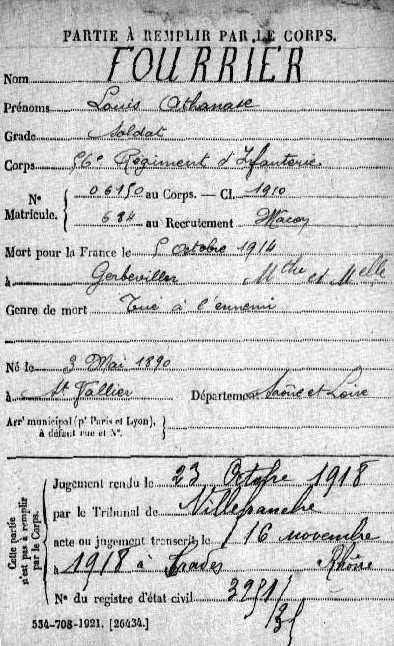 PARTIE À REMPLIR PAR LE CORPS.
Nom FOURRIER
Prénoms Louis Athanase
Grade Soldat
Corps 56e Régiment d'Infanterie
N° Matricule. { 06150 au Corps. — Cl. 1910
684 au Recrutement Macon
Mort pour la France le 5 octobre 1914
à Gerbeviller Mthe et Melle
Genre de mort Tué à l'ennemi
Né le 3 Mai 1890
à St Vallier Département Saône et Loire
Arrt municipal (pr Paris et Lyon), à défaut rue et N°. }
Cette partie n'est pas à remplir par le Corps.
Jugement rendu le 23 Octobre 1918
par le Tribunal de Villefranche
acte ou jugement transcrit le 16 novembre
à 1918 à Trades Rhône
N° du registre d'état civil
534-708-1921. [26434.]